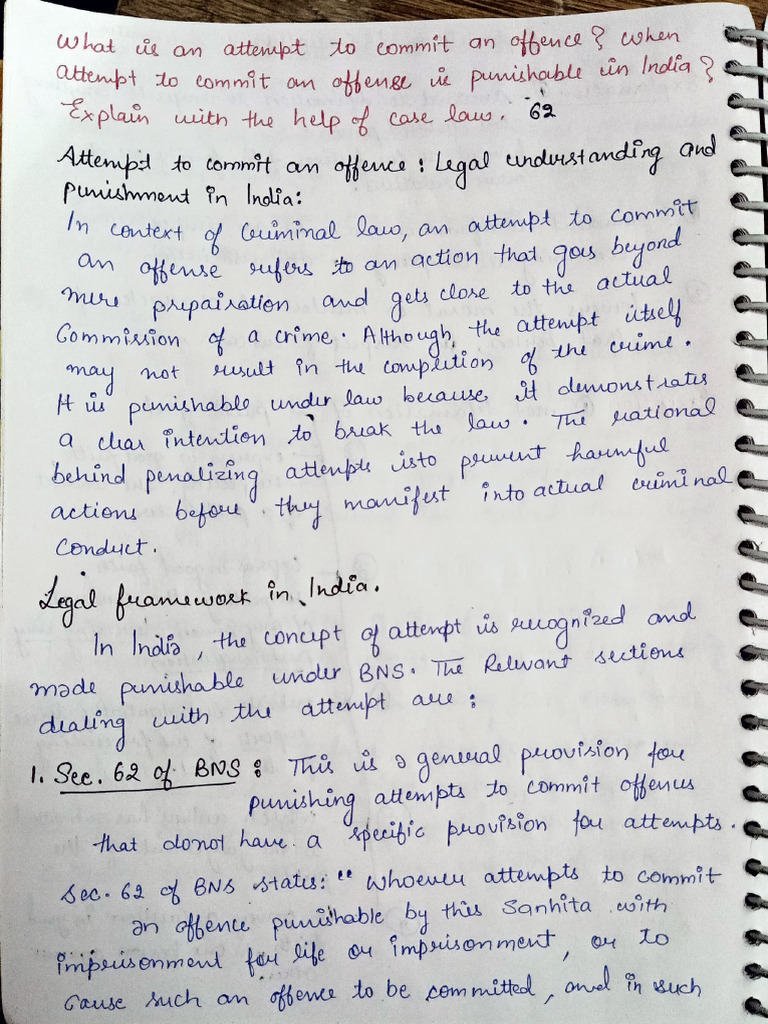 What is an attempt to commit an offence? When
attempt to commit an offense is punishable in India?
Explain with the help of case law. 62
Attempt to commit an offence : Legal understanding and
punishment in India:
In context of Criminal law, an attempt to commit
an offense refers to an action that goes beyond
mere prepairation and gets close to the actual
Commission of a crime. Although, the attempt itself
may not result in the completion of the crime.
It is punishable under law because it demonstrates
a clear intention to break the law. The rational
behind penalizing attempts isto prevent harmful
actions before they manifest into actual criminal
conduct.
Legal framework in India.
In India, the concept of attempt is recognized and
made punishable under BNS. The Relevant sections
dealing with the attempt are :
1. Sec. 62 of BNS : This is a general provision for
punishing attempts to commit offences
that donot have a specific provision for attempts.
Sec. 62 of BNS states: "Whoever attempts to commit
an offence punishable by this Sanhita with
imprisonment for life or imprisonment, or to
cause such an offence to be committed, and in such